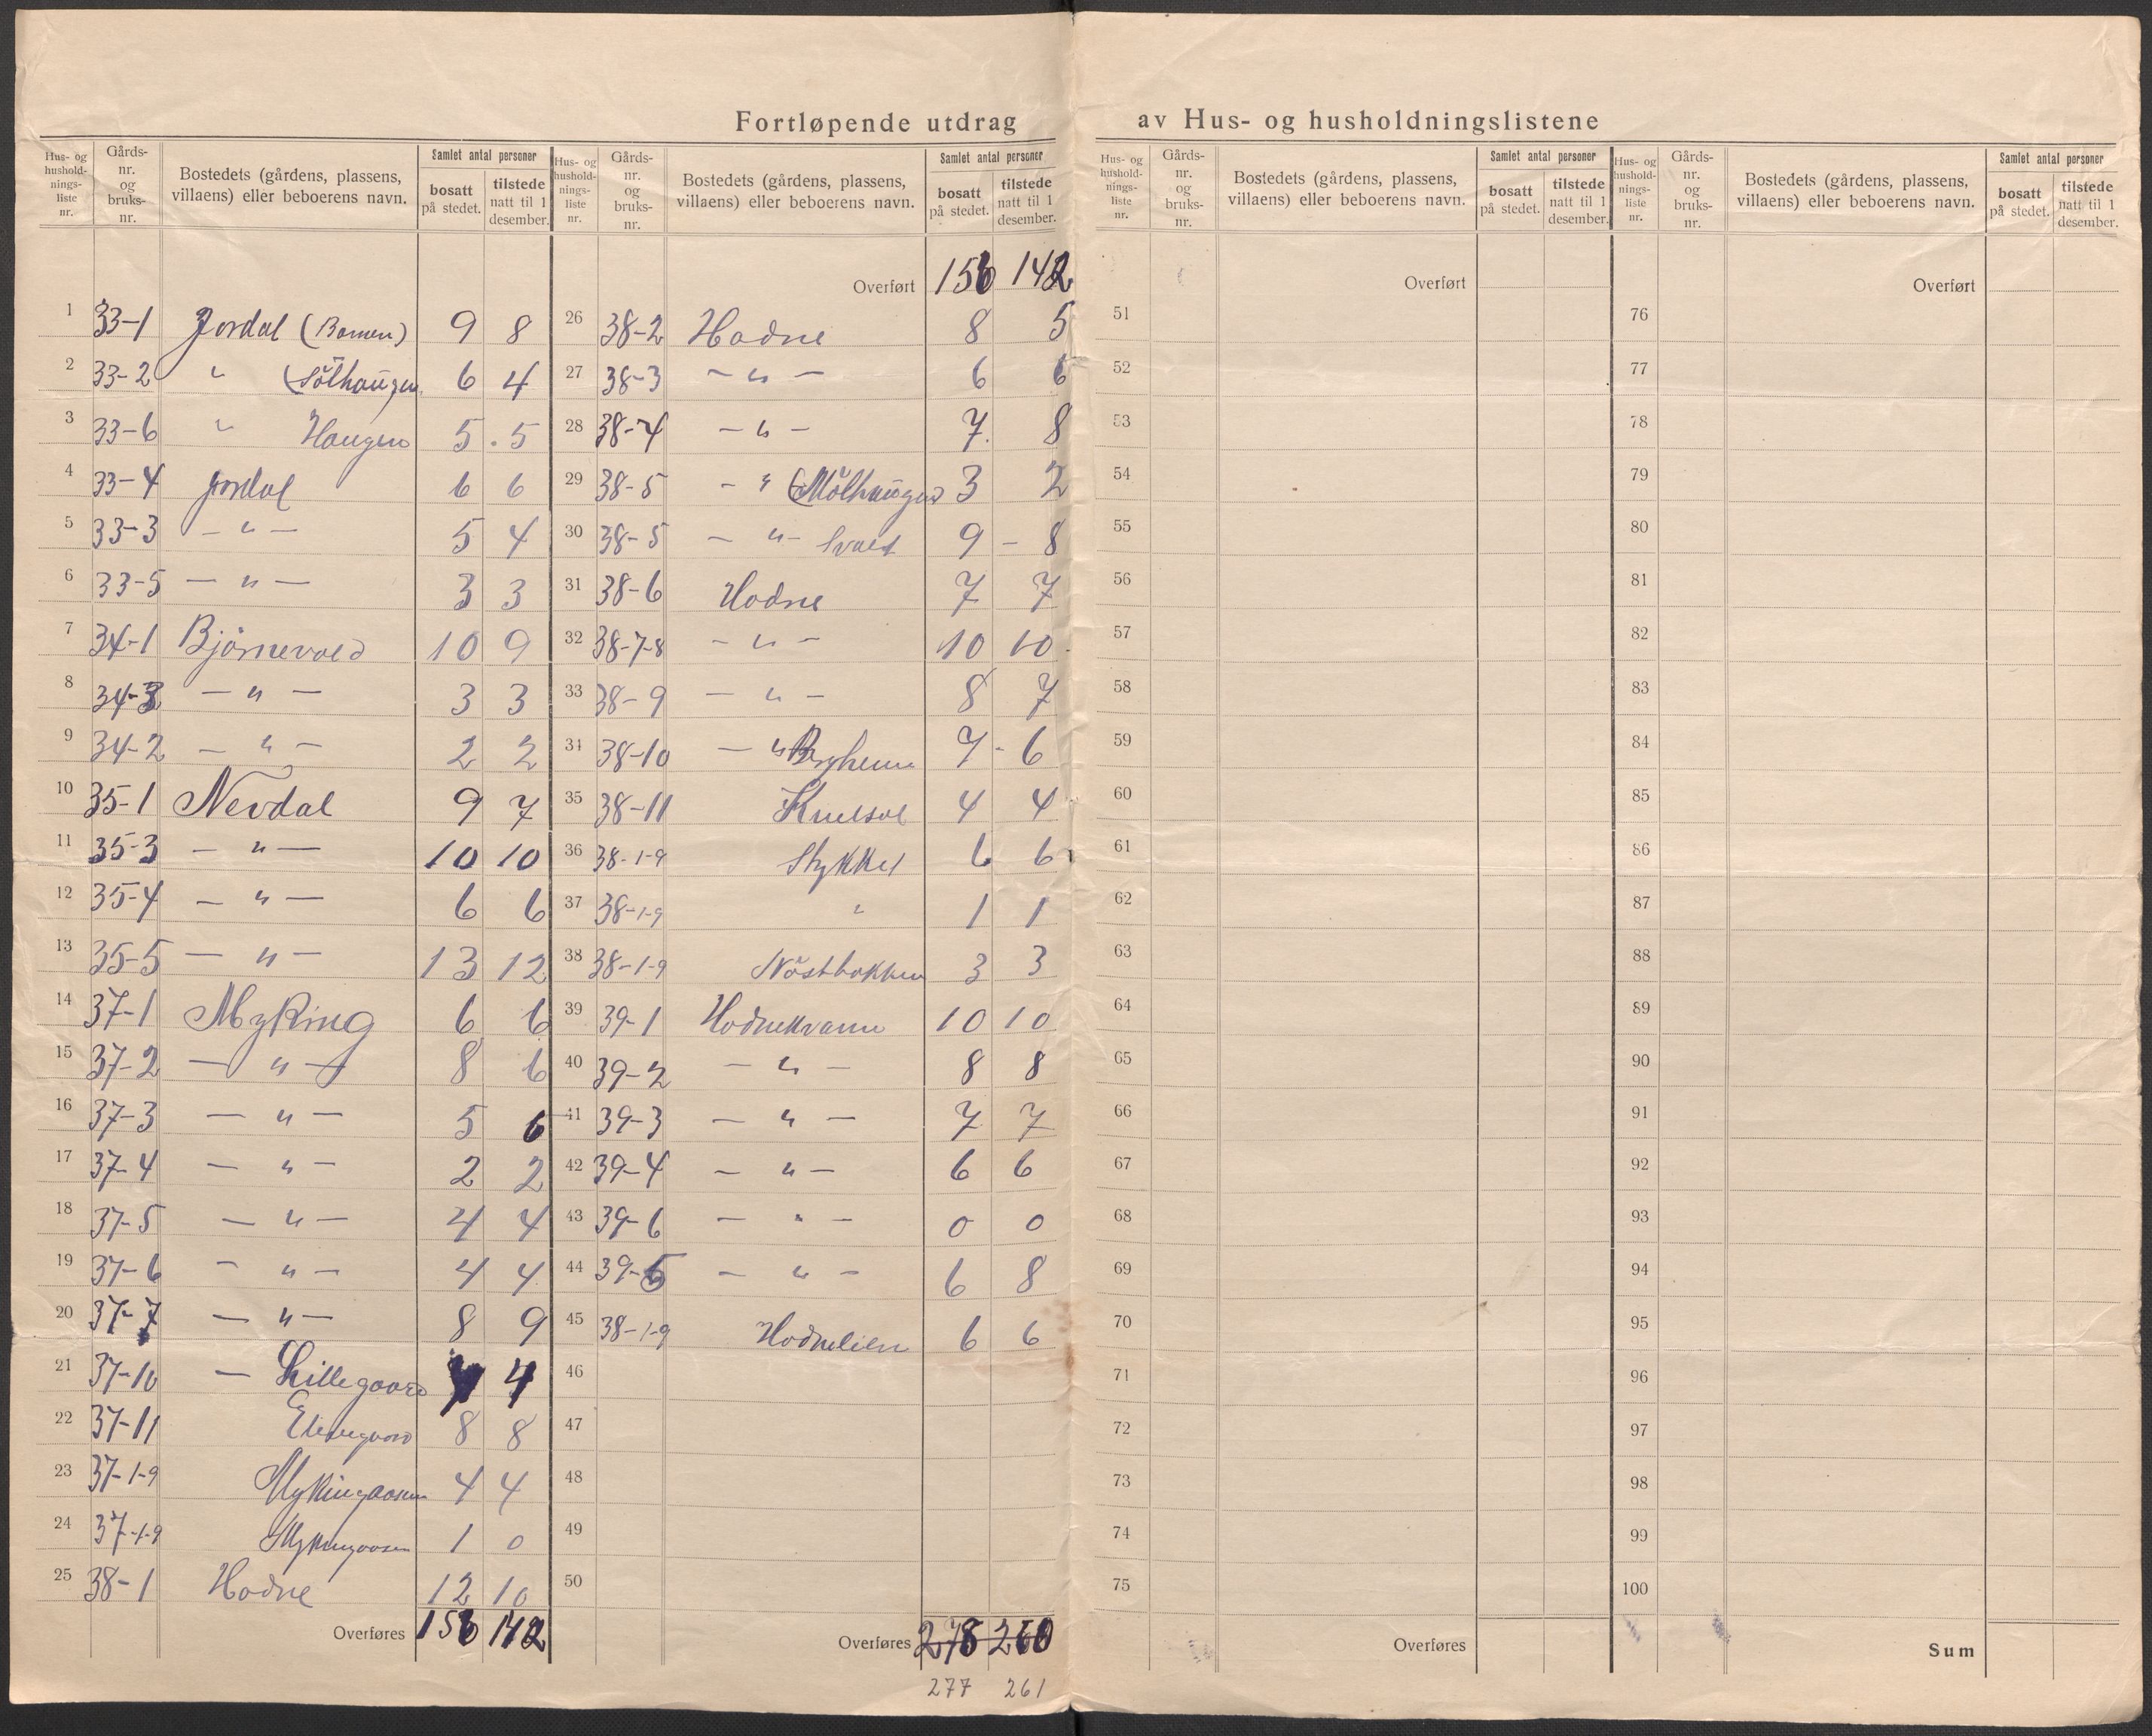 Fortløpende utdrag av Hus- og husholdningslistene
Hus- og hushold-nings-liste nr. Gårds-nr. og bruks-nr. Bostedets (gårdens, plassens, villaens) eller beboerens navn. Samlet antal personer bosatt på stedet. tilstede natt til 1 desember.
1 33-1 Jordal (Bamen) 9 8
2 33-2 " (Sölhaugen 6 4
3 33-6 " Haugen 5 . 5
4 33-4 Jordal 6 6
5 33-3 - " - 5 4
6 33-5 - " - 3 3
7 34-1 Björnevold 10 9
8 34-3 - " - 3 3
9 34-2 - " - 2 2
10 35-1 Nevdal 9 7
11 35-3 - " - 10 10
12 35-4 - " - 6 6
13 35-5 - " - 13 12
14 37-1 Myking 6 6
15 37-2 - " - 8 6
16 37-3 - " - 5 6
17 37-4 - " - 2 2
18 37-5 - " - 4 4
19 37-6 - " - 4 4
20 37-7 - " - 8 9
21 37-10 - Lillegaard 4 4
22 37-11 8 8
23 37-1-9 Mykingaasen 4 4
24 37-1-9 Mykingaasen 1 0
25 38-1 Hodne 12 10
Overføres 156 142
Hus- og hushold-nings-liste nr. Gårds-nr. og bruks-nr. Bostedets (gårdens, plassens, villaens) eller beboerens navn. Samlet antal personer bosatt på stedet. tilstede natt til 1 desember.
Overført 156 142
26 38-2 Hodne 8 5
27 38-3 - " - 6 6
28 38-4 - " - 7. 8
29 38-5 - " (Mölhaugen) 3 2
30 38-5 - " - 9 - 8
31 38-6 Hodne 7 7
32 38-7-8 - " - 10 10
33 38-9 - " - 8 7
34 38-10 - " Bergheim 7 - 6
35 38-11 4 4
36 38-1-9 Stykket 6 6
37 38-1-9 " 1 1
38 38-1-9 Nöstbakken 3 3
39 39-1 Hodnekvam 10 10
40 39-2 - " - 8 8
41 39-3 - " - 7 7
42 39-4 - " - 6 6
43 39-6 - " - 0 0
44 39-5 - " - 6 8
45 38-1-9 Hodnelien 6 6
46
47
48
49
50
Overføres 278 260
277 261
Hus- og hushold-nings-liste nr. Gårds-nr. og bruks-nr. Bostedets (gårdens, plassens, villaens) eller beboerens navn. Samlet antal personer bosatt på stedet. tilstede natt til 1 desember.
Overført
51
52
53
54
55
56
57
58
59
60
61
62
63
64
65
66
67
68
69
70
71
72
73
74
75
Overføres
Hus- og hushold-nings-liste nr. Gårds-nr. og bruks-nr. Bostedets (gårdens, plassens, villaens) eller beboerens navn. Samlet antal personer bosatt på stedet. tilstede natt til 1 desember.
Overført
76
77
78
79
80
81
82
83
84
85
86
87
88
89
90
91
92
93
94
95
96
97
98
99
100
Sum